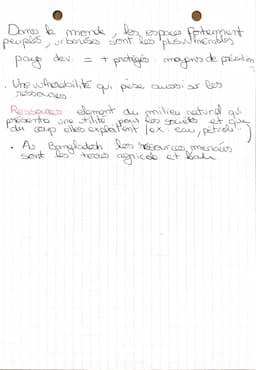 Dans le monde, les espaces fortement
peuplés, urbanisés sont les plus vulnérables
pays dev. = + protégés : moyens de prévention
. Une vulnérabilité qui pèse aussi sur les
ressources.
Ressources élément du milieu naturel qui
présente une utilité pour les sociétés et que
du coup elles exploitent (ex : eau, pétrole...)
• Au Bangladesh les ressources menacées
sont les terres agricoles et